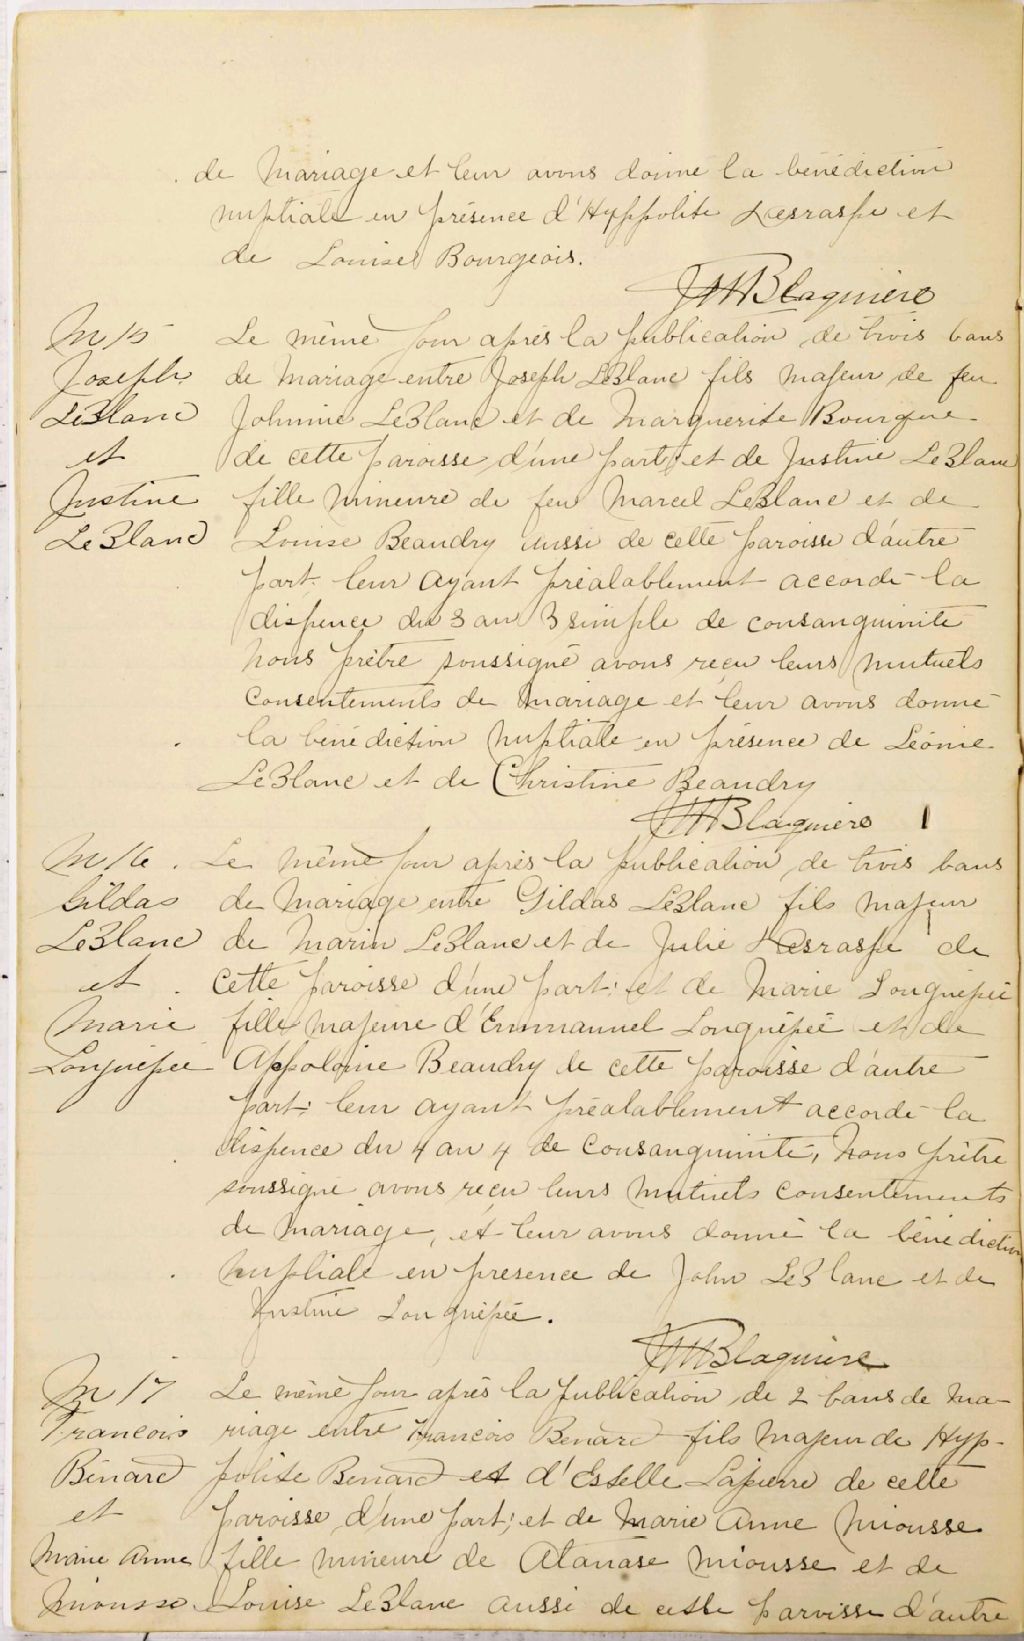 de Mariage et leur avons donné la bénédiction
nuptiale en présence d'Hyppolite Desraspe et
de Louise Bourgeois.
JMBlaquière
M 15
Joseph
LeBlanc
et
Justine
LeBlanc
Le même jour après la publication de trois bans
de Mariage entre Joseph LeBlanc fils majeur de feu
Johnnie LeBlanc et de Marguerite Bourque
de cette paroisse d'une part; et de Justine LeBlanc
fille mineure de feu Marcel LeBlanc et de
Louise Beaudry aussi de cette paroisse d'autre
part, leur ayant préalablement accordé la
dispence du 3 au 3 simple de consanguinité
Nous prêtre soussigné avons reçu leurs mutuels
consentements de mariage et leur avons donné
la bénédiction nuptiale en présence de Léonie
LeBlanc et de Christine Beaudry
JMBlaquière
M 16
Gildas
LeBlanc
et
Marie
Longuépée
Le même jour après la publication de trois bans
de Mariage entre Gildas LeBlanc fils majeur
de Marin LeBlanc et de Julie Desraspe de
cette paroisse d'une part; et de Marie Longuépée
fille majeure d'Emmanuel Longuépée et de
Appoloine Beaudry de cette paroisse d'autre
part; leur ayant préalablement accordé la
dispence du 4 au 4 de consanguinité, Nous prêtre
soussigné avons reçu leurs mutuels consentements
de mariage, et leur avons donné la bénédiction
nuptiale en présence de John LeBlanc et de
Justine Longuépée.
JMBlaquière
M 17
Francois
Bénard
et
Marie Anne
Miousse
Le même jour après la publication de 2 bans de ma-
riage entre Francois Benard fils majeur de Hyp-
polite Benard et d'Estelle Lapierre de cette
paroisse d'une part; et de Marie Anne Miousse
fille mineure de Atanase Miousse et de
Louise LeBlanc aussi de cette paroisse d'autre